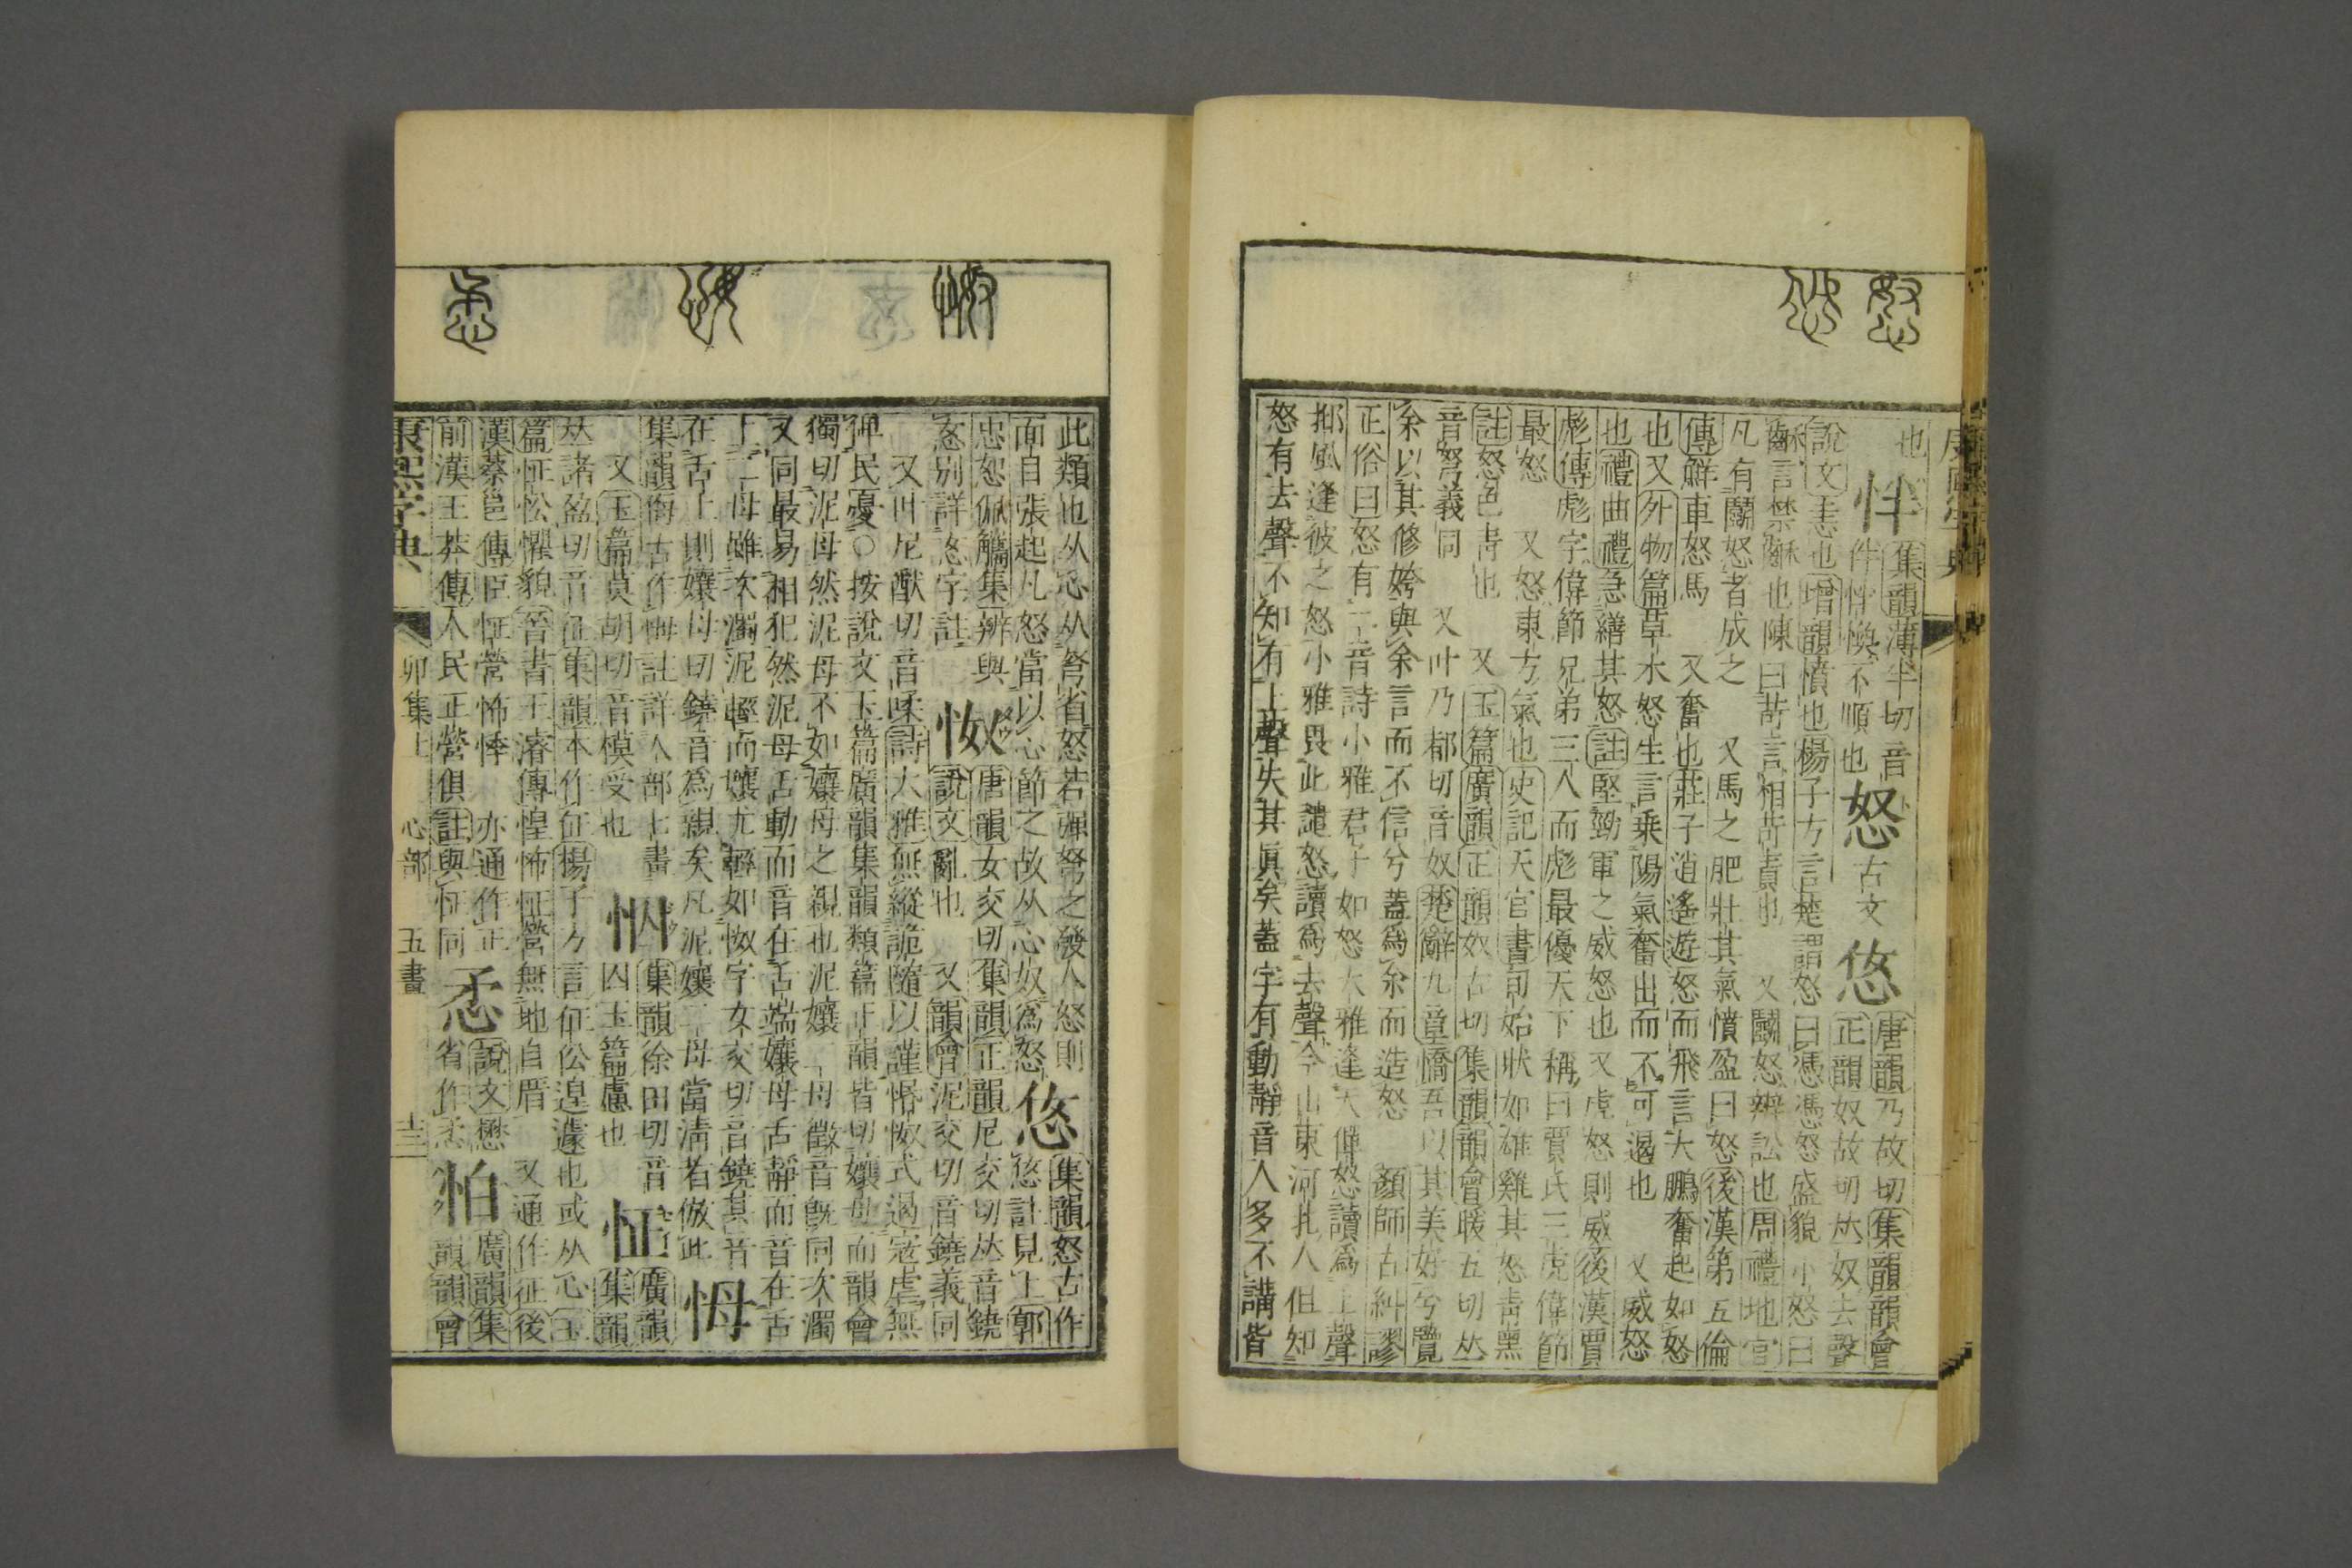 也怑集韻薄半切音怒古文㤀唐韻乃故切集韻韻會
伴怑愌不順也正韻奴故切𠀤奴去聲
說文恚也增韻憤也楊子方言楚謂怒曰憑憑怒盛貌小怒曰
齘言禁齘也陳曰苛言相苛責也 又鬭怒辨訟也周禮地官
凡有鬭怒者成之 又馬之肥壯其氣憤盈曰怒後漢第五倫
傳鮮車怒馬 又奮也莊子逍遙遊怒而飛言大鵬奮起如怒
也又外物篇草木怒生言乗陽氣奮出而不可遏也 又威怒
也禮曲禮急繕其怒註堅勁軍之威怒也又虎怒則威後漢賈
彪傳彪字偉節兄弟三人而彪最優天下稱曰賈氏三虎偉節
最怒 又怒東方氣也史記天官書旬始狀如雄雞其怒靑黑
註怒色靑也 又玉篇廣韻正韻奴古切集韻韻會暖五切𠀤
音弩義同 又叶乃都切音奴楚辭九章憍吾以其美好兮覽
余以其修姱與余言而不信兮蓋爲余而造怒 顏師古糾謬
正俗曰怒有二音詩小雅君子如怒大雅逢天僤怒讀爲上聲
邶風逢彼之怒小雅畏此譴怒讀爲去聲今山東河北人但知
怒有去聲不知有上聲失其眞矣蓋字有動靜音人多不講皆
此類也从㤀从弩省怒若彈弩之發人怒則㤀集韻怒古作
面目張起凡怒當以心節之故从心奴爲怒㤀註見上郭
忠恕佩觿集辨與怓唐韻女交切集韻正韻尼交切𠀤音鐃
忞別詳忞字註說文亂也 又韻會泥交切音鐃義同
又叶尼猷切音柔詩大雅無縱詭隨以謹惽怓式遏寇虐無
俾民憂○按說文玉篇廣韻集韻類篇正韻皆切孃母而韻會
獨切泥母然泥母不如孃母之親也泥孃二母徵音旣同次濁
又同最易相犯然泥母舌動而音在舌端孃母舌靜而音在舌
上二母雖次濁泥輕而孃尤輕如怓字女交切音鐃其音
在舌上則孃母切鐃音爲親矣凡泥孃二母當淸者倣此
集韻侮古作㑄註詳人部七畫㤙集韻徐田切音怔廣韻
又玉篇莫胡切音模受也囚玉篇慮也集韻
𠀤諸盈切音征集韻本作佂楊子方言佂伀遑遽也或从心玉
篇怔忪懼貌晉書王濬傳惶怖怔營無地自厝 又通作征後
漢蔡邕傳臣怔營怖悸 亦通作正
前漢王莽傳人民正營俱註與怔同㤅說文懋省作 怕廣韻集韻韻會
康熙字典 卯集上 心部 五畫 十三